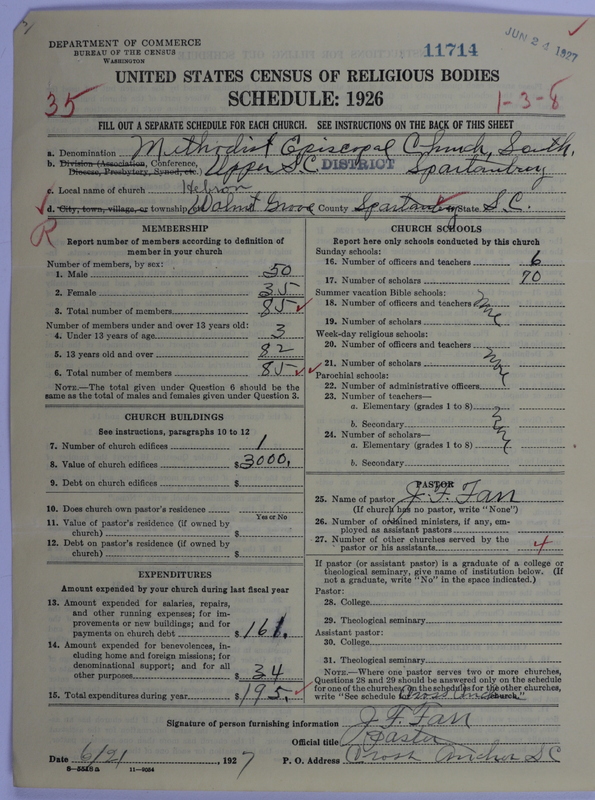 DEPARTMENT OF COMMERCE
BUREAU OF THE CENSUS
WASHINGTON
11714
JUN 24 1927
UNITED STATES CENSUS OF RELIGIOUS BODIES
SCHEDULE: 1926
35
1-3-8
FILL OUT A SEPARATE SCHEDULE FOR EACH CHURCH. SEE INSTRUCTIONS ON THE BACK OF THIS SHEET
a. Denomination Methodist Episcopal Church, South,
b. Division (Association, Conference, Diocese, Presbytery, Synod, etc.) Upper S.C. DISTRICT Spartanburg
c. Local name of church Hebron
d. City, town, village, or township Walnut Grove County Spartanburg State S.C.
R
MEMBERSHIP
Report number of members according to definition of
member in your church
Number of members, by sex:
1. Male 50
2. Female 35
3. Total number of members 85
Number of members under and over 13 years old:
4. Under 13 years of age 3
5. 13 years old and over 82
6. Total number of members 85
NOTE.—The total given under Question 6 should be the
same as the total of males and females given under Question 3.
CHURCH BUILDINGS
See instructions, paragraphs 10 to 12
7. Number of church edifices 1
8. Value of church edifices $3000.
9. Debt on church edifices $
10. Does church own pastor's residence
Yes or No
11. Value of pastor's residence (if owned by
church) $
12. Debt on pastor's residence (if owned by
church) $
EXPENDITURES
Amount expended by your church during last fiscal year
13. Amount expended for salaries, repairs,
and other running expenses; for im-
provements or new buildings; and for
payments on church debt $161.
14. Amount expended for benevolences, in-
cluding home and foreign missions; for
denominational support; and for all
other purposes 34
15. Total expenditures during year $195.
CHURCH SCHOOLS
Report here only schools conducted by this church
Sunday schools:
16. Number of officers and teachers 6
17. Number of scholars 70
Summer vacation Bible schools:
18. Number of officers and teachers
19. Number of scholars
Week-day religious schools:
20. Number of officers and teachers
21. Number of scholars
Parochial schools:
22. Number of administrative officers
23. Number of teachers—
a. Elementary (grades 1 to 8)
b. Secondary
24. Number of scholars—
a. Elementary (grades 1 to 8)
b. Secondary
PASTOR
25. Name of pastor J. F. Farr
(If church has no pastor, write "None")
26. Number of ordained ministers, if any, em-
ployed as assistant pastors
27. Number of other churches served by the
pastor or his assistants 4
If pastor (or assistant pastor) is a graduate of a college or
theological seminary, give name of institution below. (If
not a graduate, write "No" in the space indicated.)
Pastor:
28. College
29. Theological seminary
Assistant pastor:
30. College
31. Theological seminary
NOTE.—Where one pastor serves two or more churches,
Questions 28 and 29 should be answered only on the schedule
for one of the churches; on the schedules for the other churches,
write "See schedule for Cross Anchor church."
Signature of person furnishing information J. F. Farr
Official title Pastor
Date 6/21, 1927 P. O. Address Cross Anchor SC
8-5518a 11-9054